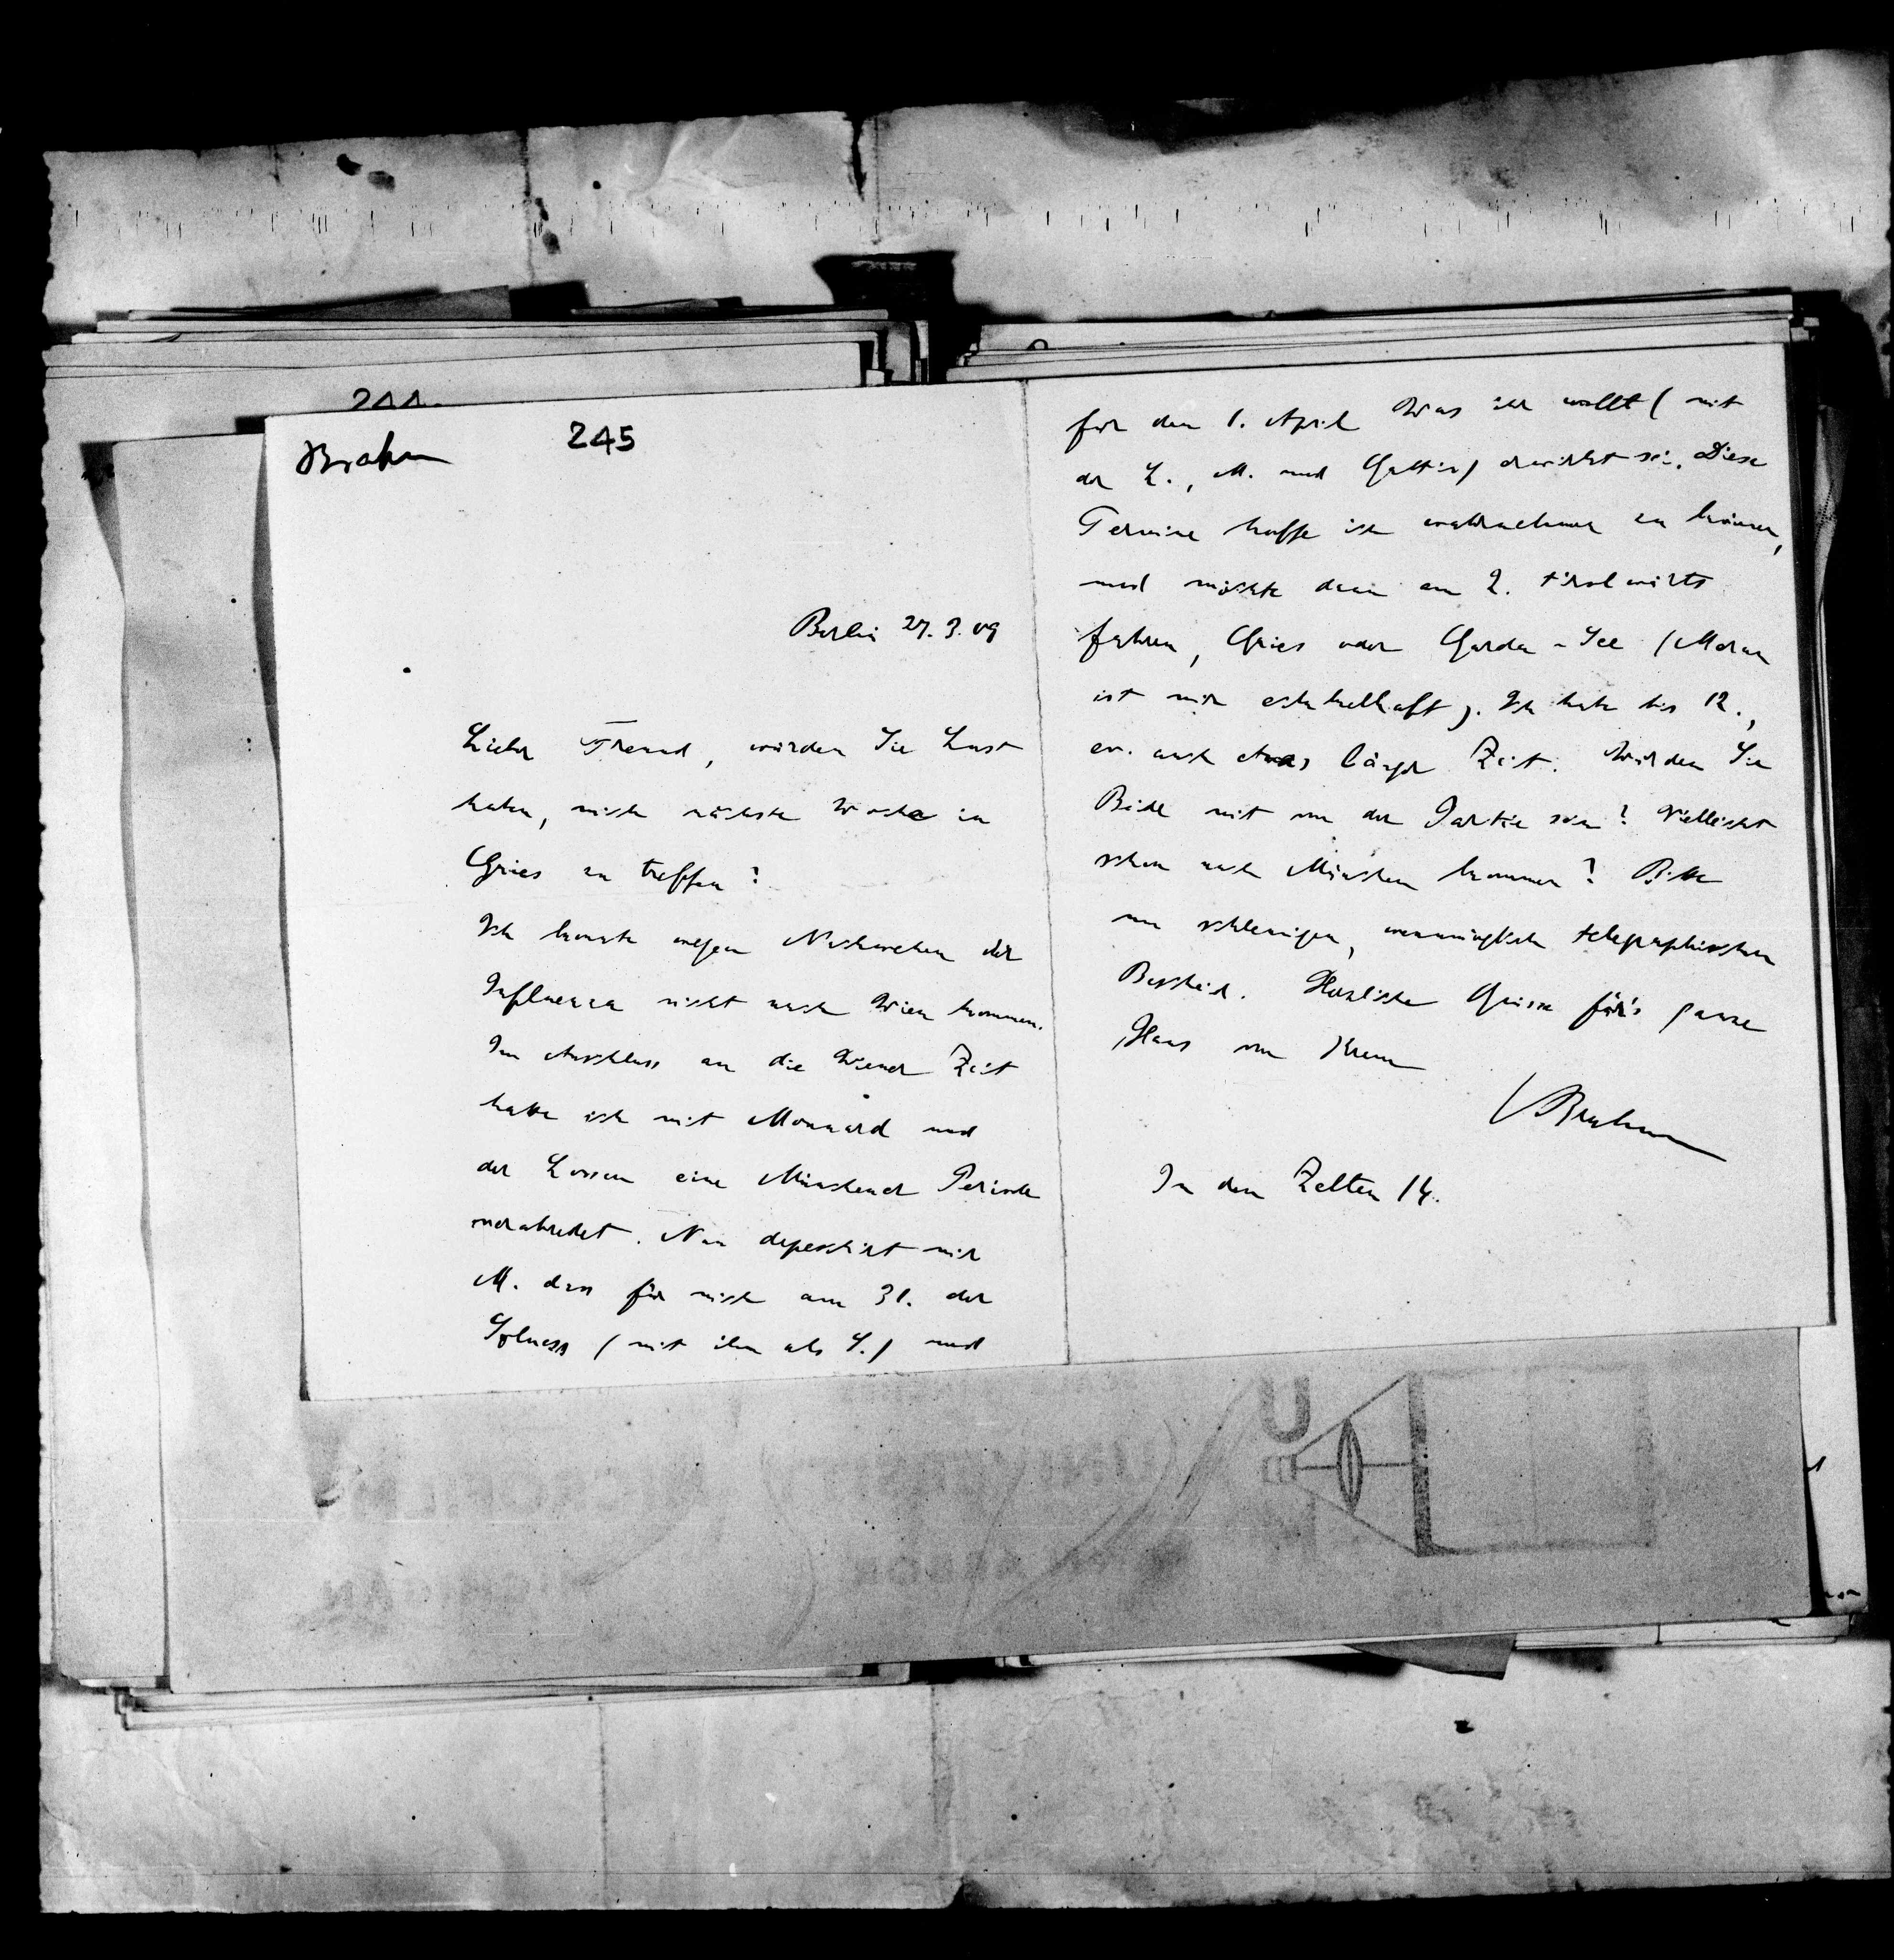 244.
Brahm
245
Berlin 27. 3. 09
Lieber Freund, würden Sie Lust
haben, mich nächste Woche in
Gries zu treffen?
Ich konnte wegen Nachwehen der
Influenza nicht nach Wien kommen.
Im Anschluss an die Wiener Zeit
hatte ich mit Monnard und
der Lossen eine Münchener Periode
verabredet. Nun depeschirt mir
M. dass für mich am 31. der
Solness (mit ihm als S.) und
für den 1. April Was ihr wollt (mit
der L., M. und Gattin) erwirkt sei. Diese
Termine hoffe ich wahrnehmen zu können,
und möchte dann am 2. tirolwärts
fahren, Gries oder Garda-See (Meran
ist mir eckelhaft). Ich habe bis 12.,
ev. auch etwas länger Zeit. Würden Sie
Beide mit von der Partie sein? Vielleicht
schon nach München kommen? Bitte
um schleunigen, womöglich telegraphischen
Bescheid. Herzliche Grüsse für's ganze
Haus von Ihrem
Brahm
In den Zelten 14.